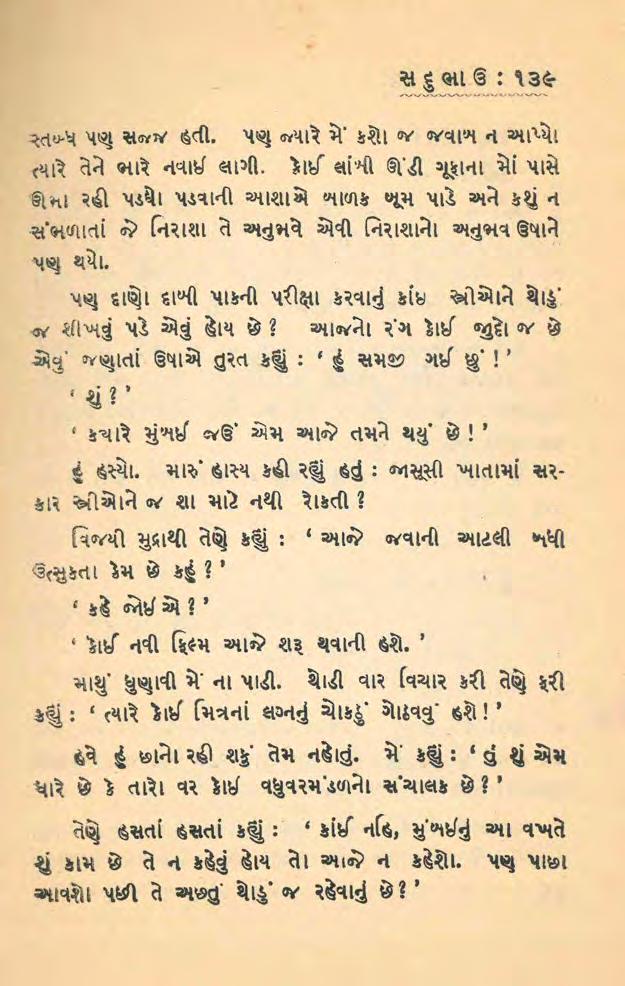 સ દુ ભા ઉ : ૧૩૯
સ્તબ્ધ પણ સજ્જ હતી. પણ જ્યારે મેં કશો જ જવાબ ન આપ્યો
ત્યારે તેને ભારે નવાઈ લાગી. કોઈ લાંબી ઊંડી ગૂફાના મોં પાસે
ઊભા રહી પડઘો પડવાની આશાએ બાળક બૂમ પાડે અને કશું ન
સંભળાતાં જે નિરાશા તે અનુભવે એવી નિરાશાનો અનુભવ ઉષાને
પણ થયો.
પણ દાણો દાબી પાકની પરીક્ષા કરવાનું કાંઇ સ્ત્રીઓને થોડું
જ શીખવું પડે એવું હોય છે ? આજનો રંગ કોઈ જુદો જ છે
એવું જણાતાં ઉષાએ તુરત કહ્યું : ‘ હું સમજી ગઈ છું ! ’
‘ શું ? ’
‘ ક્યારે મુંબઈ જઉં એમ આજે તમને થયું છે ! ’
હું હસ્યો. મારું હાસ્ય કહી રહ્યું હતું : જાસૂસી ખાતામાં સર-
કાર સ્ત્રીઓને જ શા માટે નથી રોકતી ?
વિજયી મુદ્રાથી તેણે કહ્યું : ‘ આજે જવાની આટલી બધી
ઉત્સુકતા કેમ છે કહું ? ’
‘ કહે જોઈએ ? ’
‘ કોઈ નવી ફિલ્મ આજે શરૂ થવાની હશે. ’
માથું ધુણાવી મેં ના પાડી. થોડી વાર વિચાર કરી તેણે ફરી
કહ્યું : ‘ ત્યારે કોઈ મિત્રનાં લગ્નનું ચોકઠું ગોઠવવું હશે ! ’
હવે હું છાનો રહી શકું તેમ નહોતું. મેં કહ્યું : ‘ તું શું એમ
ધારે છે કે તારો વર કોઈ વધુવરમંડળનો સંચાલક છે ? ’
તેણે હસતાં હસતાં કહ્યું : ‘ કાંઈ નહિ, મુંબઇનું આ વખતે
શું કામ છે તે ન કહેવું હોય તો આજે ન કહેશો. પણ પાછા
આવશો પછી તે અછતું થોડું જ રહેવાનું છે ? ’